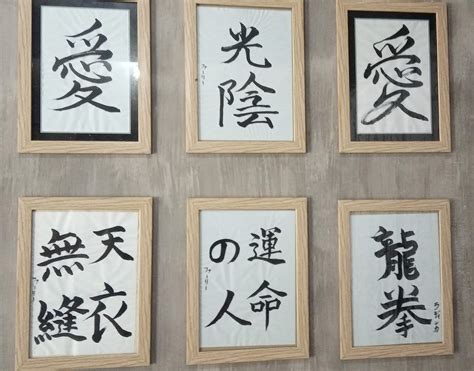 愛
光陰
愛
天衣
無縫
運命
の人
龍拳